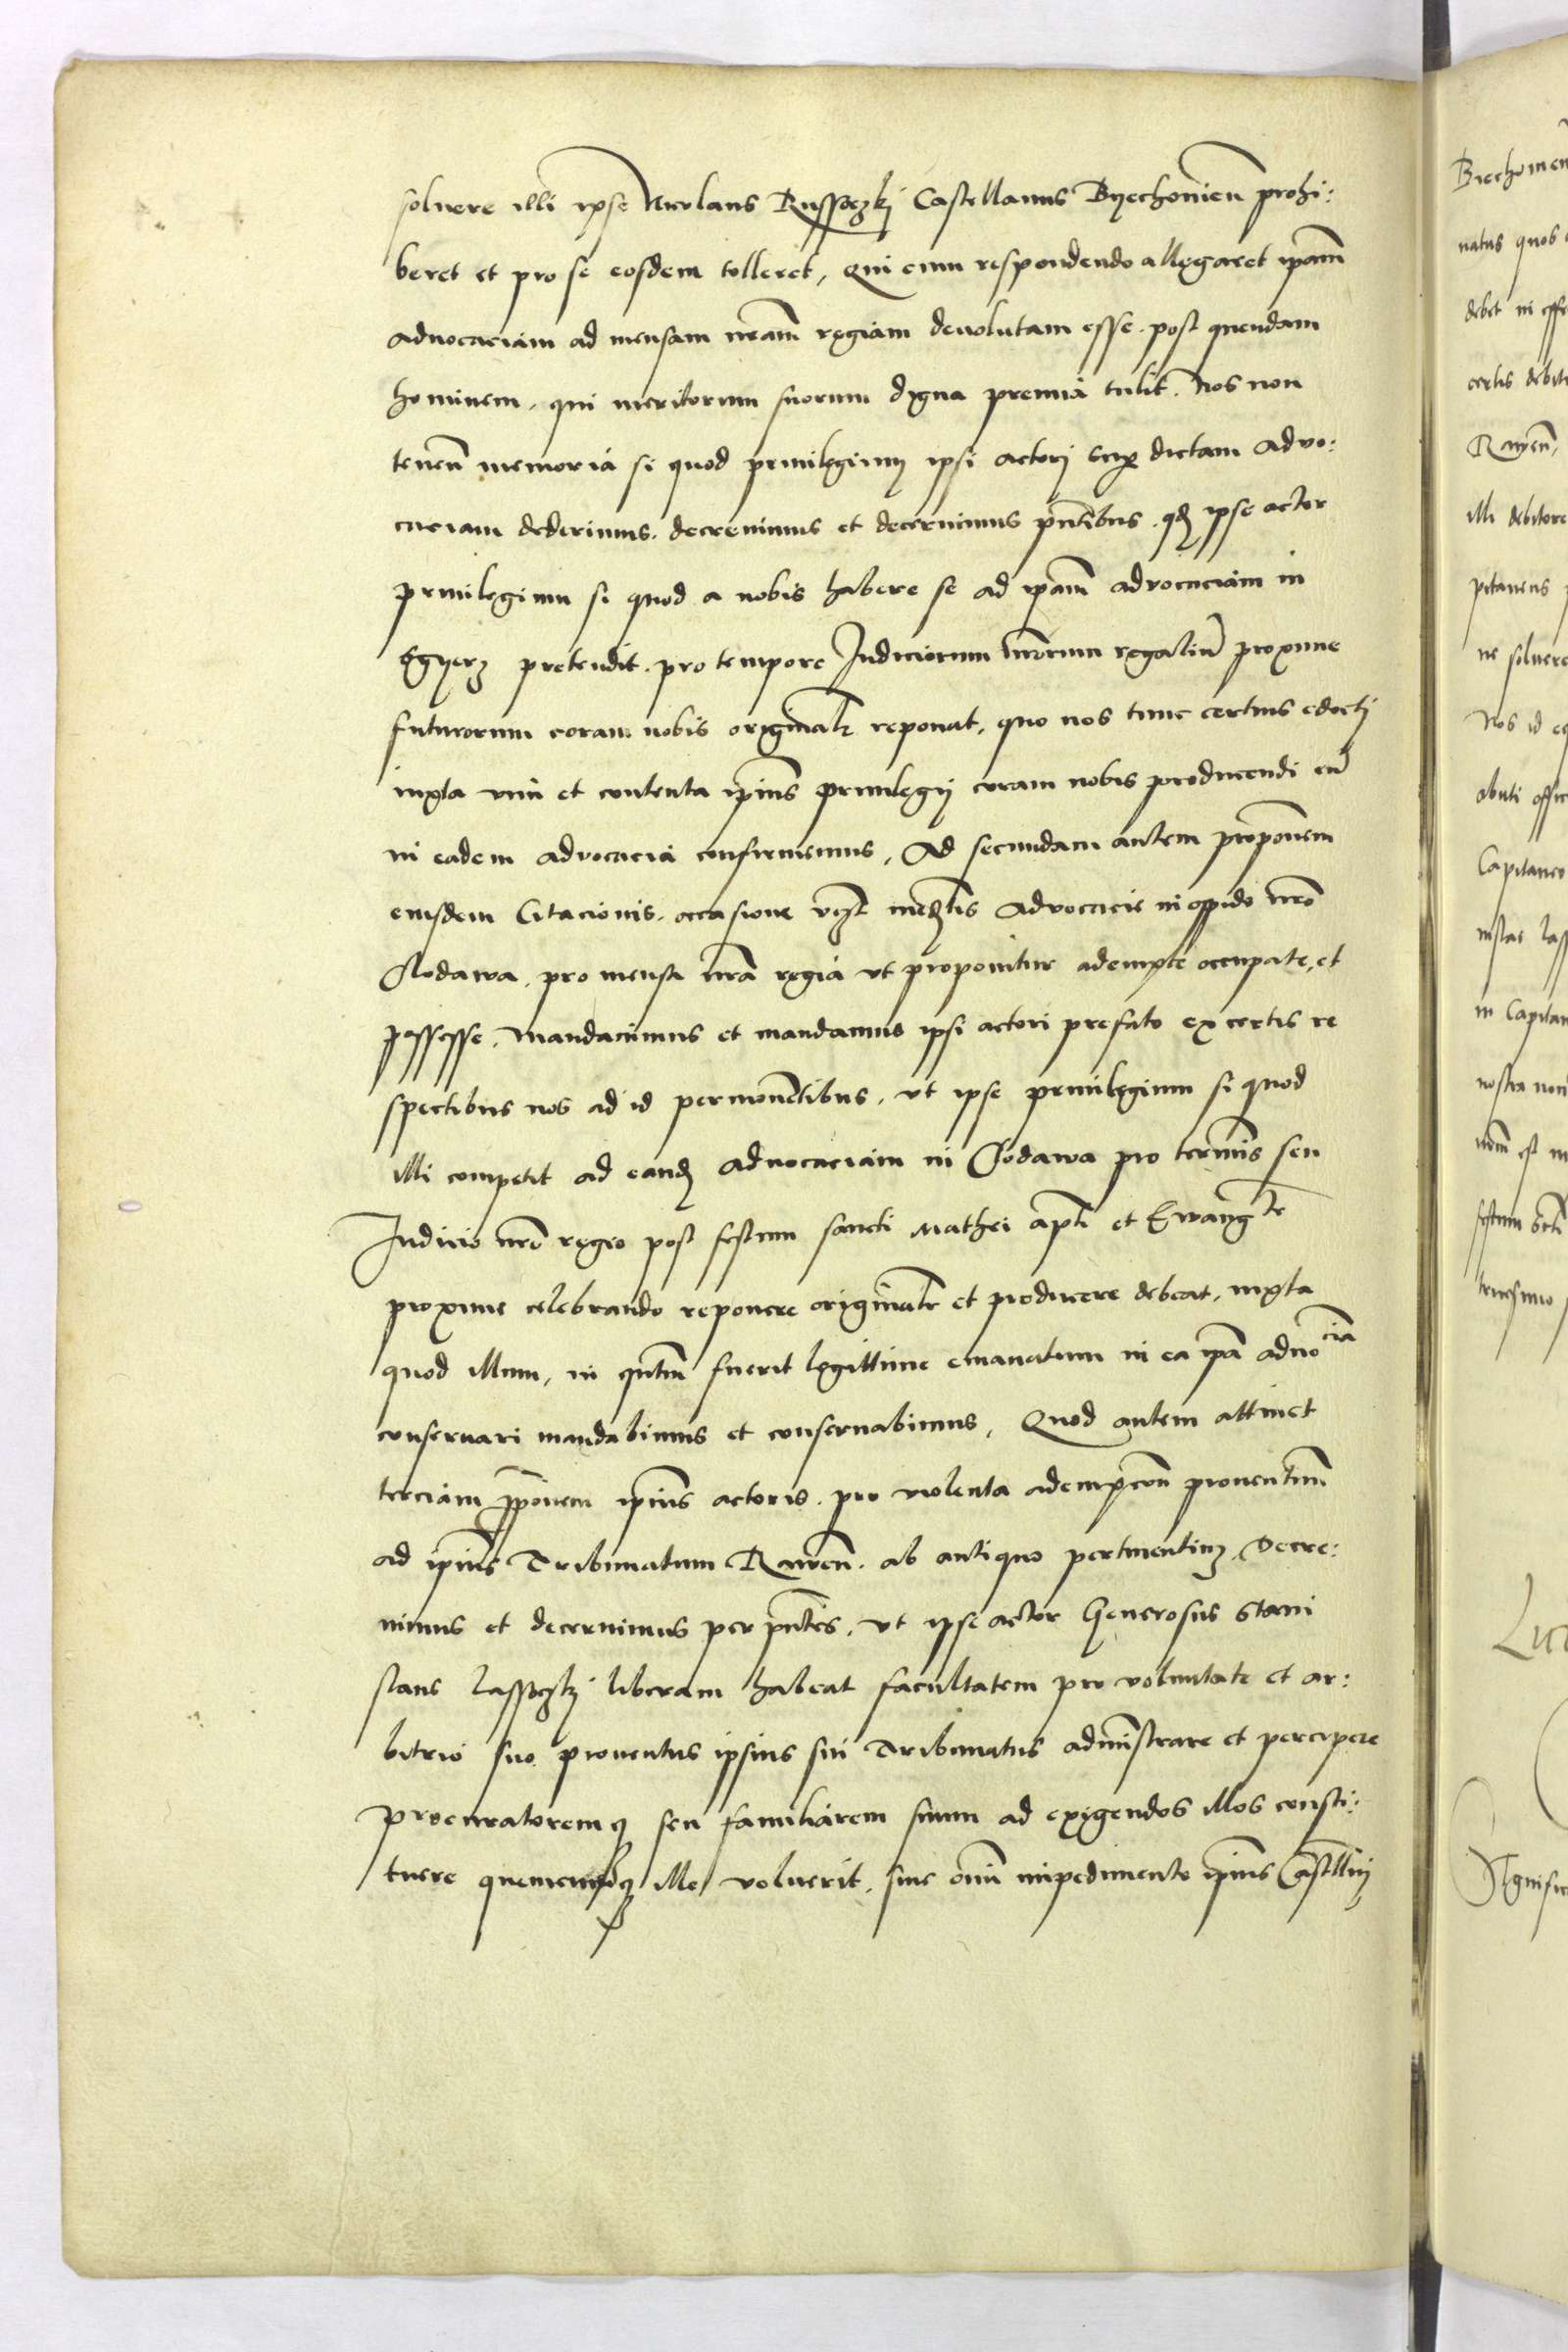 soluere illi ipse Nicolaus Russoczkj Castellanus Byechouien prohi:
beret et pro se eosdem tolleret, Qui cum respondendo allegaret ipam
aduocaciam ad mensam nram regiam deuolutam esse. post quendam
hominem. qui meritorum suorum digna premia tulit. Nos non
tenen memoria si quod priuilegium ipsi actorj super dictam aduo:
caciam dederimus. decreuimus et decernimus pntibus. qd ipse actor
priuilegium si quod a nobis habere se ad ipam aduocaciam in
Sgyerz pretendit. pro tempore Iudiciorum nrorum regaliu proxime
futurorum coram nobis originalr reponat, quo nos tunc certius edoctj
iuxta vim et contenta ipius priuilegij coram nobis producendi eu
in eadem aduocacia confirmemus, Ad secundam autem proponem
eiusdem Citacionis. occasione Aduocacie in oppido nro
Clodawa. pro mensa nra regia vt proponitur adempte occupate, et
possesse. Mandauimus et mandamus ipsi actori prefato ex certis re
spectibus nos ad id permouentibus, vt ipse priuilegium si quod
illi competit ad eand aduocaciam in Clodawa pro terminis seu
Iudicio nro regio post festum sancti Mathei apli et Ewangte
proxime celebrando reponere originalr et producere debeat, iuxta
quod illum, in qntum fuerit legittime emanatum in ea ipa aduocia
conseruari mandabimus et conseruabimus, Quod autem attinet
terciam proponem ipius actoris. pro violenta adempcon prouentuum
ad ipius Tribunatum Rawen. ab antiquo pertinentium, Decre:
uimus et decernimus per pntes, vt ipse actor Generosus Stani
slaus Lassoczkj liberam habeat facultatem pro voluntate et ar:
bitrio suo prouentus ipsius sui Tribunatus administrare et percipere
procuratoremq seu familiarem suum ad exigendos illos consti:
tuere quemcumq ille voluerit, sine omi impedimento ipius Castellni